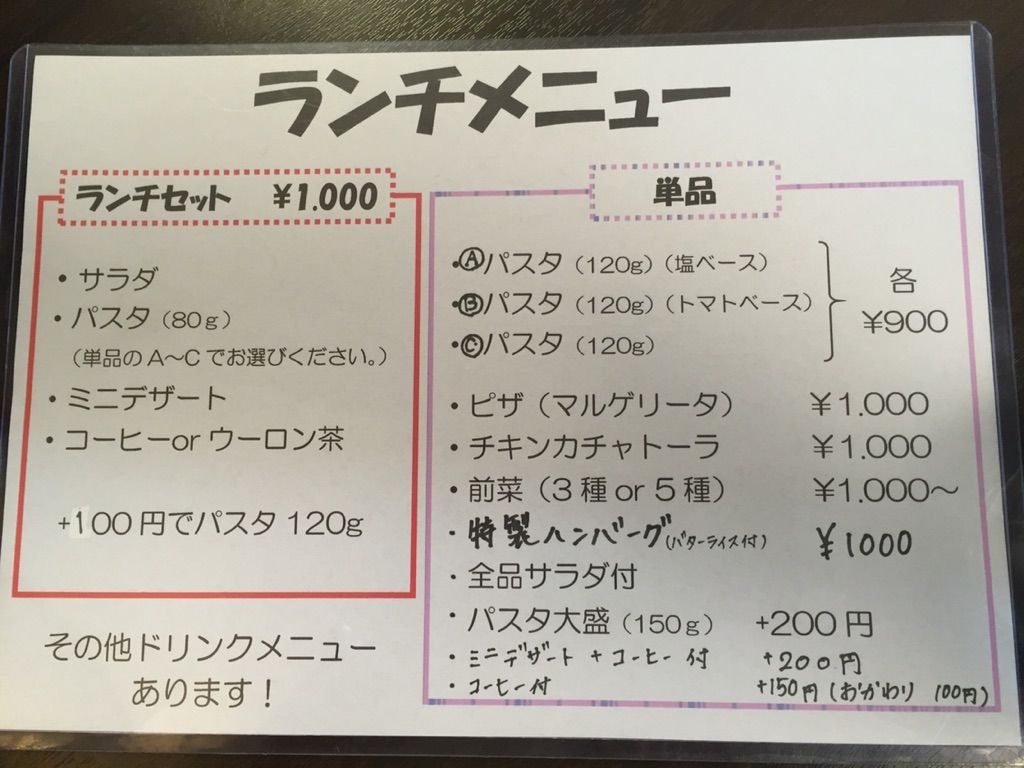 ランチメニュー
ランチセット ¥1.000
・サラダ
・パスタ（80g）
（単品のA〜Cでお選びください。）
・ミニデザート
・コーヒーorウーロン茶
+100円でパスタ120g
その他ドリンクメニュー
あります！
単品
・Ⓐパスタ（120g）（塩ベース）
・Ⓑパスタ（120g）（トマトベース）
・Ⓒパスタ（120g）
各
¥900
・ピザ（マルゲリータ） ¥1.000
・チキンカチャトーラ ¥1.000
・前菜（3種or5種） ¥1.000〜
・特製ハンバーグ（バターライス付） ¥1000
・全品サラダ付
・パスタ大盛（150g） +200円
・ミニデザート+コーヒー付 +200円
・コーヒー付 +150円（おかわり 100円）